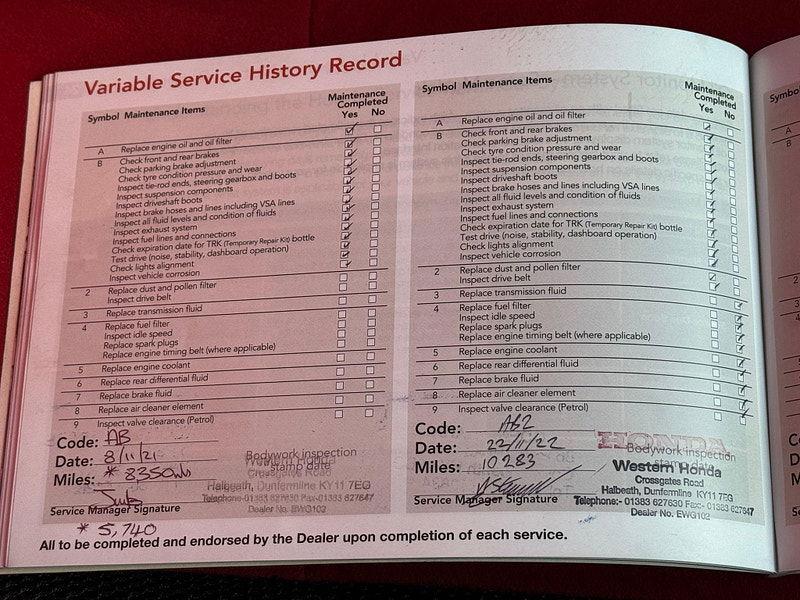 Variable Service History Record
Symbol Maintenance Items
Maintenance
Completed
Yes No
A Replace engine oil and oil filter
B Check front and rear brakes
Check parking brake adjustment
Check tyre condition pressure and wear
Inspect tie-rod ends, steering gearbox and boots
Inspect suspension components
Inspect driveshaft boots
Inspect brake hoses and lines including VSA lines
Inspect all fluid levels and condition of fluids
Inspect exhaust system
Inspect fuel lines and connections
Check expiration date for TRK (Temporary Repair Kit) bottle
Test drive (noise, stability, dashboard operation)
Check lights alignment
Inspect vehicle corrosion
2 Replace dust and pollen filter
Inspect drive belt
3 Replace transmission fluid
4 Replace fuel filter
Inspect idle speed
Replace spark plugs
Replace engine timing belt (where applicable)
5 Replace engine coolant
6 Replace rear differential fluid
7 Replace brake fluid
8 Replace air cleaner element
9 Inspect valve clearance (Petrol)
Code: AB
Date: 8/11/21
Miles: * 8350
Bodywork inspection
stamp date
Western Honda
Crossgates Road
Halbeath, Dunfermline KY11 7EG
Telephone:-01383 627630 Fax:-01383 627647
Dealer No. EWG102
Service Manager Signature
* 5,740
Symbol Maintenance Items
Maintenance
Completed
Yes No
A Replace engine oil and oil filter
B Check front and rear brakes
Check parking brake adjustment
Check tyre condition pressure and wear
Inspect tie-rod ends, steering gearbox and boots
Inspect suspension components
Inspect driveshaft boots
Inspect brake hoses and lines including VSA lines
Inspect all fluid levels and condition of fluids
Inspect exhaust system
Inspect fuel lines and connections
Check expiration date for TRK (Temporary Repair Kit) bottle
Test drive (noise, stability, dashboard operation)
Check lights alignment
Inspect vehicle corrosion
2 Replace dust and pollen filter
Inspect drive belt
3 Replace transmission fluid
4 Replace fuel filter
Inspect idle speed
Replace spark plugs
Replace engine timing belt (where applicable)
5 Replace engine coolant
6 Replace rear differential fluid
7 Replace brake fluid
8 Replace air cleaner element
9 Inspect valve clearance (Petrol)
Code: AB2
Date: 22/11/22
Miles: 10283
HONDA
Bodywork inspection
Western Honda
Crossgates Road
Halbeath, Dunfermline KY11 7EG
Telephone:- 01383 627630 Fax:- 01383 627647
Dealer No. EWG102
Service Manager Signature
All to be completed and endorsed by the Dealer upon completion of each service.
Symbol
A
B